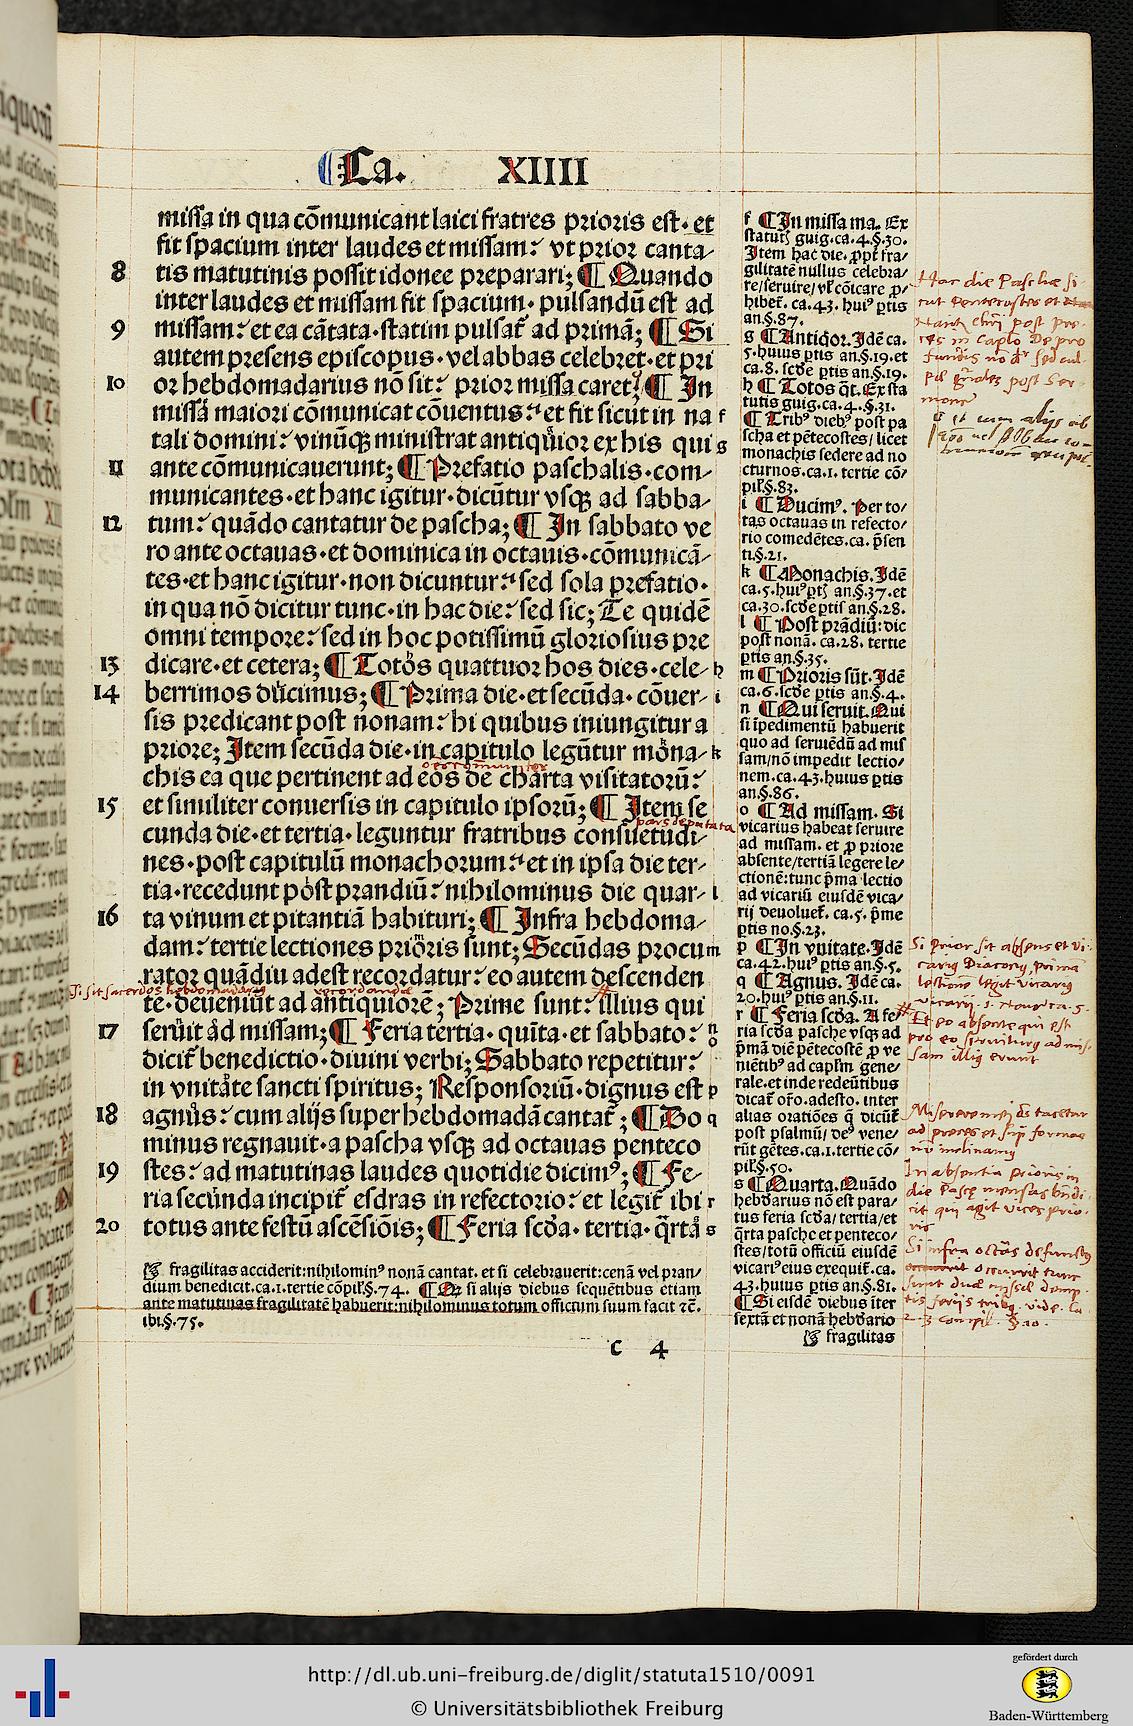 Ca. XIIII
missa in qua cõmunicant laici fratres prioris est· et
fit spacium inter laudes et missam: vt prior canta-
8 tis matutinis possit idonee preparari; ¶ Quando
inter laudes et missam fit spacium· pulsandũ est ad
9 missam: et ea cãtata· statim pulsat᷑ ad primã; ¶ Si
autem presens episcopus· vel abbas celebret· et pri
10 or hebdomadarius nõ sit: prior missa caret; ¶ In
missã maiori cõmunicat cõuentus: et fit sicut in na f
tali domini: vinũqꝫ ministrat antiquior ex his qui g
11 ante cõmunicauerunt; ¶ Prefatio paschalis· com-
municantes· et hanc igitur· dicũtur vsqꝫ ad sabba-
12 tum: quãdo cantatur de pascha; ¶ In sabbato ve
ro ante octauas· et dominica in octauis· cõmunicã-
tes· et hanc igitur· non dicuntur: sed sola prefatio·
in qua nõ dicitur tunc· in hac die: sed sic; Te quidẽ
omni tempore: sed in hoc potissimũ gloriosius pre
13 dicare· et cetera; ¶ Totos quattuor hos dies· cele- h
14 berrimos ducimus; ¶ Prima die· et secũda· cõuer- i
sis predicant post nonam: hi quibus iniungitur a
priore; Item secũda die· in capitulo legũtur mona- k
chis ea que pertinent ad eos de charta visitatorũ:
15 et similiter conuersis in capitulo ipsorũ; ¶ Item se
pars deputata
cunda die· et tertia· leguntur fratribus consuetudi-
nes· post capitulũ monachorum: et in ipsa die ter-
tia· recedunt post prandiũ: nihilominus die quar- l
16 ta vinum et pitantiã habituri; ¶ Infra hebdoma-
dam: tertie lectiones prioris sunt; Secũdas procu m
rator quãdiu adest recordatur: eo autem descenden
Si sit sacerdos hebdomadarius
te· deueniũt ad antiquiorẽ; Prime sunt: illius qui
17 seruit ad missam; ¶ Feria tertia· quĩta· et sabbato: n
dicit᷑ benedictio· diuini verbi; Sabbato repetitur: o
in vnitate sancti spiritus; Responsoriũ· dignus est p
18 agnus: cum alijs super hebdomadã cantat᷑; ¶ Do q
minus regnauit· a pascha vsqꝫ ad octauas penteco
19 stes: ad matutinas laudes quotidie dicimꝰ; ¶ Fe-
ria secunda incipit᷑ esdras in refectorio: et legit᷑ ibi r
20 totus ante festũ ascẽsiõis; ¶ Feria scďa· tertia· q̃rta s
☞ fragilitas acciderit: nihilominꝰ nonã cantat. et si celebrauerit: cenã vel pran/
dium benedicit. ca. 1. tertie cõpil᷑. §. 74. ¶ Et si alijs diebus sequẽtibus etiam
ante matutinas fragilitatẽ habuerit: nihilominus totum officium suum facit ⁊c̃.
ibi. §. 75.
c 4
f ¶ In missa ma. Ex
statut᷑ guig. ca. 4. §. 30.
Item hac die. ꝓpt᷑ fra-
gilitatẽ nullus celebra-
re/seruire/ vl᷑ cõicare ꝓ-
hibet᷑. ca. 43. huiꝰ ꝑtis
an. §. 87.
g ¶ Antiqor. Idẽ ca.
5. huius ꝑtis an. §. 19. et
ca. 8. scďe ꝑtis an. §. 19.
h ¶ Totos q̃t. Ex sta
tutis guig. ca. 4. §. 31.
¶ Tribꝰ diebꝰ post pa
scha et pẽtecostes/ licet
monachis sedere ad no
cturnos. ca. 1. tertie cõ-
pil᷑. §. 83.
i ¶ Ducimꝰ. Per to-
tas octauas in refecto-
rio comedẽtes. ca. p̃sen
ti. §. 21.
k ¶ Monachis. Idẽ
ca. 5. huiꝰ ꝑt᷑. §. 37. et
ca. 30. scďe ꝑtis an. §. 28.
l ¶ Post prãdiũ: dic
post nonã. ca. 28. tertie
ꝑtis an. §. 35.
m ¶ Prioris sũt. Idẽ
ca. 6. scďe ꝑtis an. §. 4.
n ¶ Qui seruit. Qui
si ĩpedimentũ habuerit
quo ad seruiẽdũ ad mis
sam/ nõ impedit lectio/
nem. ca. 43. huius ꝑtis
an. §. 86.
o ¶ Ad missam. Si
vicarius habeat seruire
ad missam. et ꝓ priore
absente/ tertiã legere le/
ctionẽ: tunc p̃ma lectio
ad vicariũ eiusdẽ vica-
rij deuoluet᷑. ca. 5. p̃me
ꝑtis no. §. 23.
p ¶ In vnitate. Idẽ
ca. 42. huiꝰ ꝑtis an. §. 5.
q ¶ Agnus. Idẽ ca.
20. huiꝰ ꝑtis an. §. 11.
r ¶ Feria scďa. A fe
ria scďa pasche vsqꝫ ad
p̃mã diẽ pẽtecostẽ ꝓ ve
niẽtibꝰ ad capl̃m gene/
rale. et inde redeũtibus
dicat᷑ or̃o. adesto. inter
alias oratiões q̃ dicũt᷑
post psalmũ/ deꝰ vene/
rũt gẽtes. ca. 1. tertie cõ-
pil᷑. §. 50.
s ¶ Quarta. Quãdo
hebďarius nõ est para-
tus feria scďa/ tertia/ et
q̃rta pasche et penteco/
stes/ totũ officiũ eiusdẽ
vicariꝰ eius exequit᷑. ca.
43. huius ꝑtis an. §. 81.
¶ Si eisdẽ diebus iter
sextã et nonã hebďario
☞ fragilitas
Hac die Paschæ si-
cut Pentecostes et
post Ser-
mone
Si Prior sit absens et Vi-
carius Diaconus, primã
lectionẽ legit Vicarius
Vicarij. 1. Noue ca. 5.
Et eo absente qui est
pro eo seruiturus ad mis-
sam illius erunt
ad preces et
In absentia Prioris in
die Pascę mensas bñdi-
cit qui agit vices Prio-
ris
Si infra octãs defunctus
occurrit tunc
http://dl.ub.uni-freiburg.de/diglit/statuta1510/0091
© Universitätsbibliothek Freiburg
gefördert durch
Baden-Württemberg